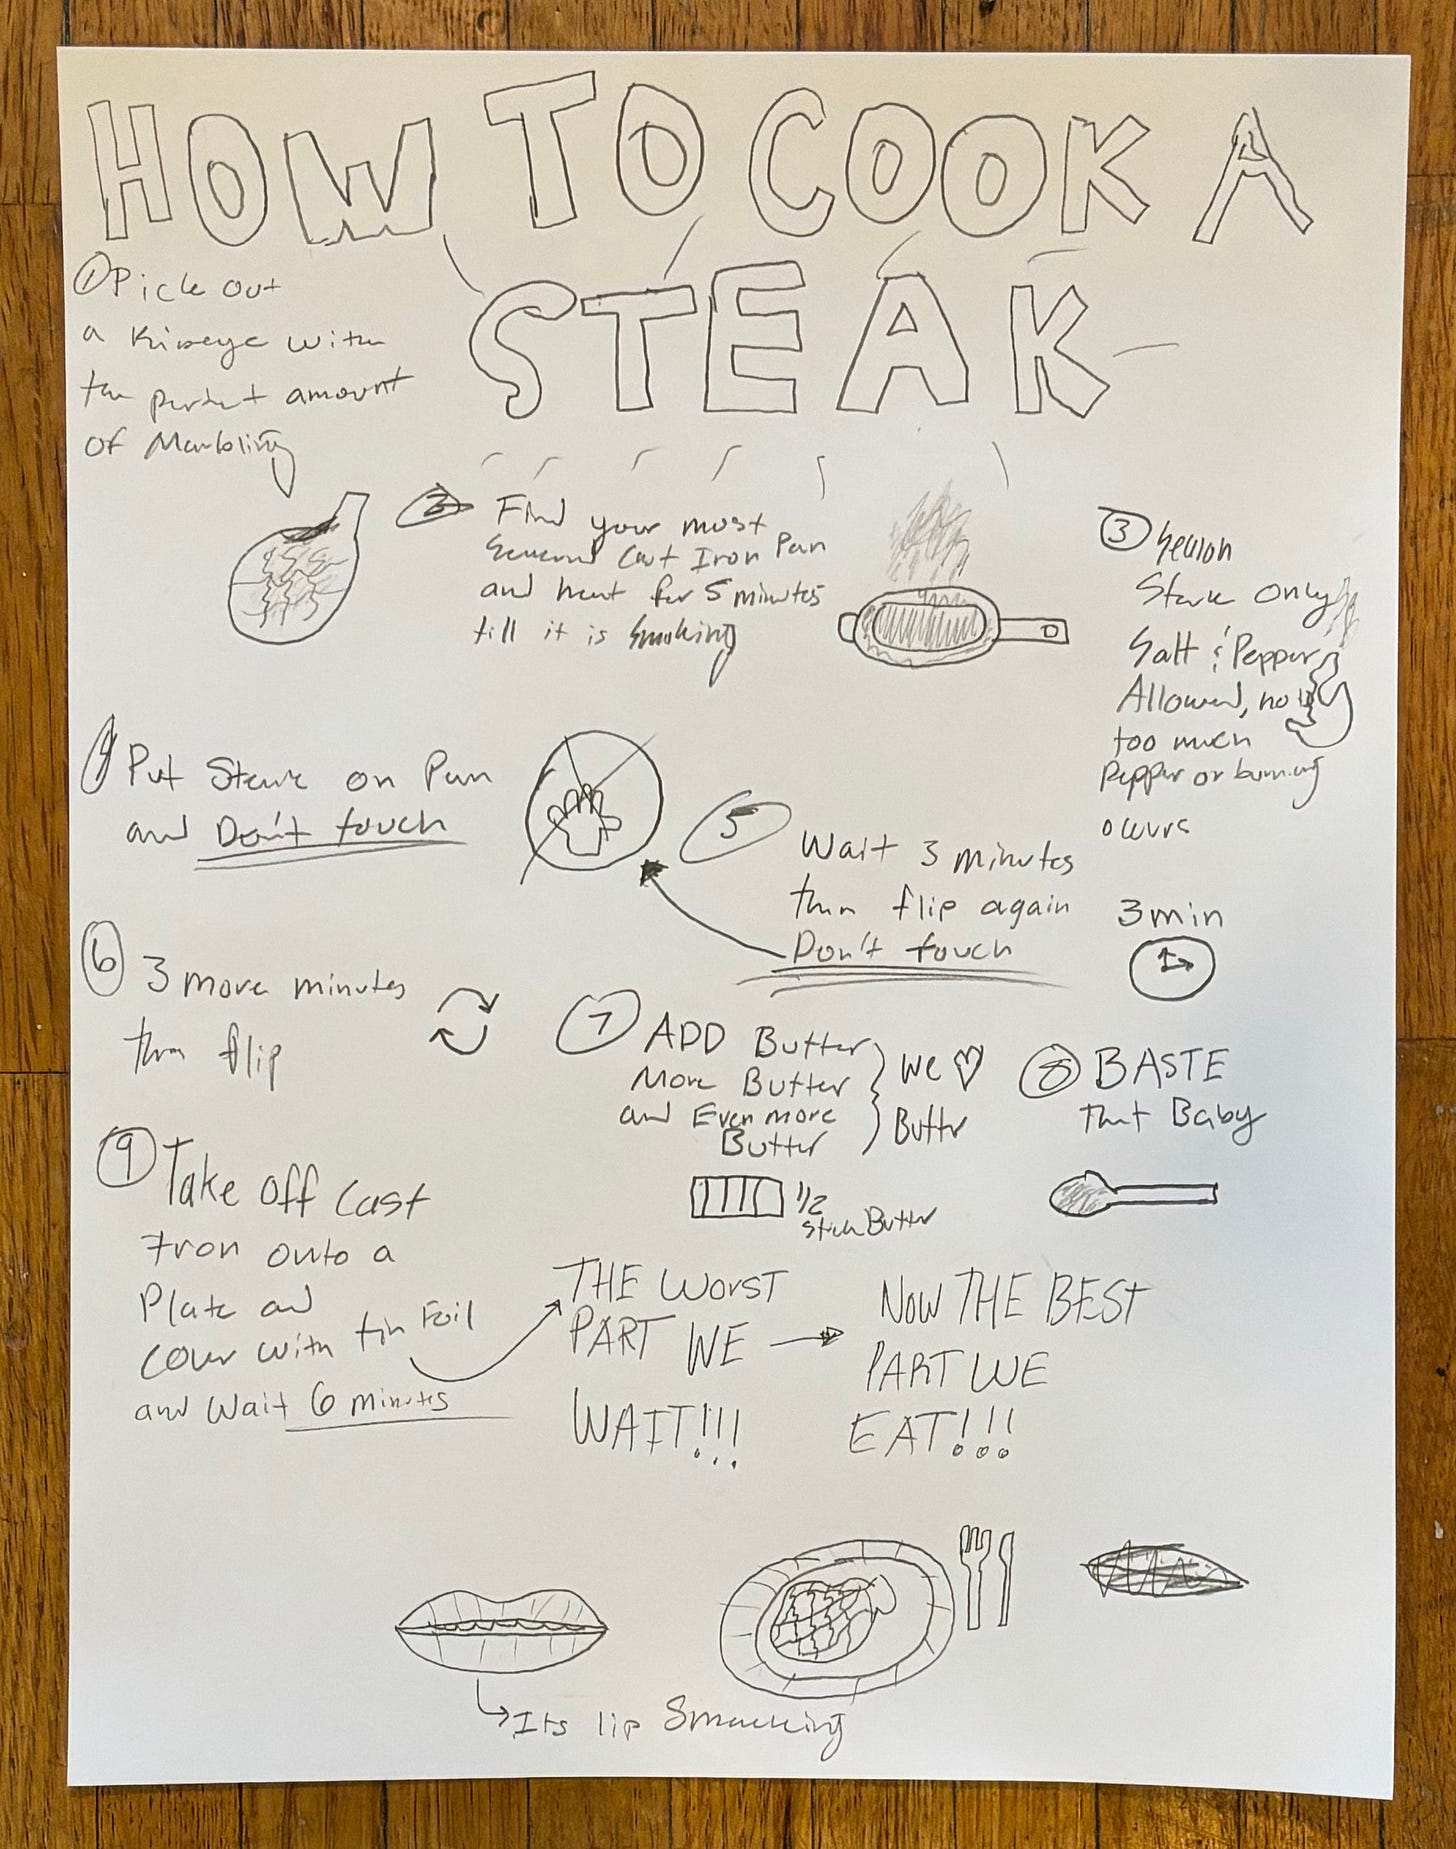 HOW TO COOK A
STEAK
① Pick out
a Ribeye with
the perfect amount
of Marbling
② Find your most
Seasoned Cast Iron Pan
and heat for 5 minutes
till it is Smoking
③ Season
Steak Only
Salt & Pepper
Allowed, not
too much
Pepper or burning
occurs
4 Put Steak on Pan
and Don't touch
⑤ Wait 3 minutes
then flip again
Don't touch
3 min
⑥ 3 more minutes
then flip
⑦ ADD Butter
More Butter
and Even more
Butter
We ♡
Butter
1/2
Stick Butter
⑧ BASTE
That Baby
⑨ Take off Cast
Iron onto a
Plate and
Cover with tin Foil
and Wait 6 minutes
THE WORST
PART WE
WAIT!!!
NOW THE BEST
PART WE
EAT!!!
Its lip Smacking